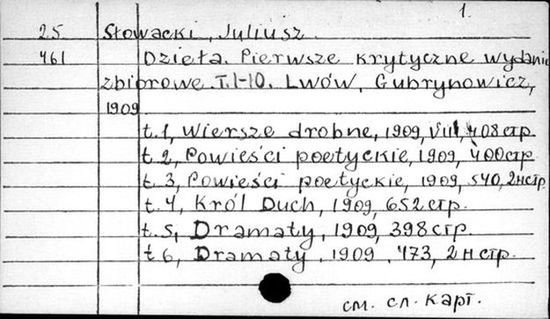 1.
25 Słowacki, Juliusz.
461 Dzieła. Pierwsze krytyczne wydanie
zbiorowe. T.1-10. Lwów, Gubrynowicz,
1909
t.1, Wiersze drobne, 1909, VIII, 408 стр.
t.2, Powieści poetyckie, 1909, 400 стр.
t.3, Powieści poetyckie, 1909, 540, 2 н стр.
t.4, Król Duch, 1909, 652 стр.
t.5, Dramaty, 1909, 398 стр.
t 6, Dramaty, 1909, 473, 2 н стр.
см. сл. карт.